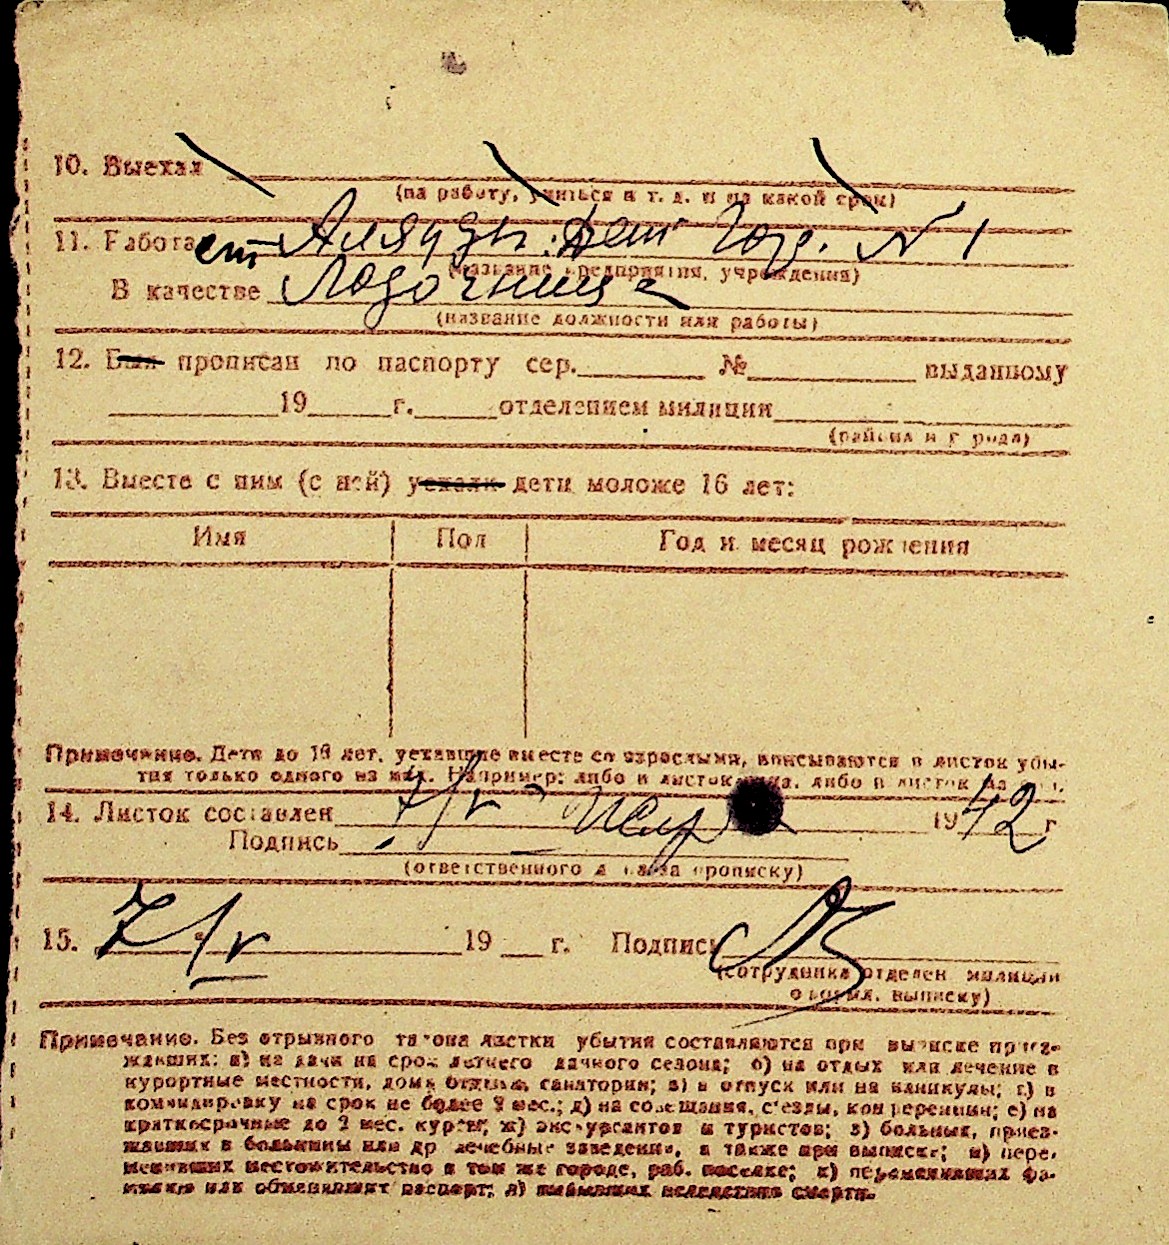 10. Выехал
(на работу, учиться и т. д. и на какой срок)
11. Работает Дет № 1
(название предприятия, учреждения)
В качестве
(название должности или работы)
12. Был прописан по паспорту сер. № выданному
19 г. отделением милиции
(района и города)
13. Вместе с ним (с ней) уехали дети моложе 16 лет:
Имя Пол Год и месяц рождения
Примечание. Дети до 16 лет, уехавшие вместе со взрослыми, вписываются в листок убы-
тия только одного из них. Например: либо в листок, либо в листок
14. Листок составлен 7/V 1942 г
Подпись
(ответственного за прописку)
15. 7/V 19 г. Подпись
(сотрудника отделен. милиции
оформл. выписку)
Примечание. Без отрывного талона листки убытия составляются при выписке приез-
жавших: а) на дачи на срок летнего дачного сезона; б) на отдых или лечение в
курортные местности, дома отдыха, санатории; в) в отпуск или на каникулы; г) в
командировку на срок не более 2 мес.; д) на совещания, съезды, конференции; е) на
краткосрочные до 2 мес. курсы; ж) экскурсантов и туристов; з) больных, приез-
жавших в больницы или др лечебные заведения, а также при выписке; и) пере-
менивших местожительство в том же городе, раб. поселке; к) переменивших фа-
милию или обменявших паспорт; л) выбывших вследствие смерти.